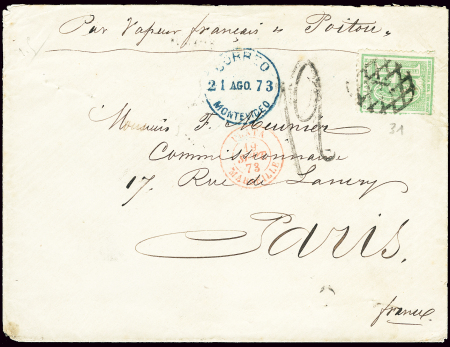 Par Vapeur français "Poitou"
CORREO
21 AGO. 73
MONTEVIDEO
31
Monsieur F. Meunier
73
Commissionnaire
17, Rue de Lancry
Paris.
france.